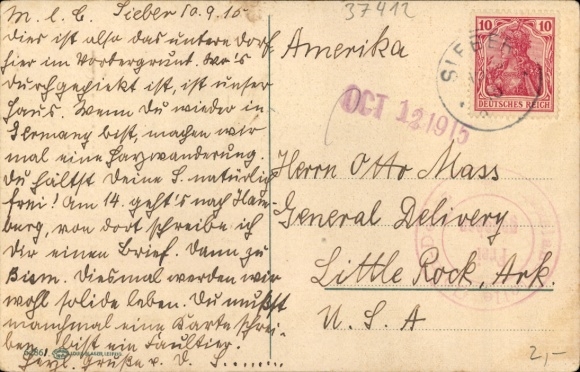 M. l. E. Sieber 10.9.15
Dies ist also das untere Dorf
hier im Vordergrunt. Wo's
durchgepiekt ist, ist unser
Haus. Wenn Du wieder in
Germany bist, machen wir
mal eine Harzwanderung.
Du hältst Deine S. natürlich
frei! Am 14. geht's nach Ham-
burg, von dort schreibe ich
Dir einen Brief. Dann zu
Diesmal werden wir
wohl solide leben. Du mußt
manchmal eine Karte schrei-
ben, bist ein Faultier.
Herzl. Grüße v. D.
LOUIS GLASER, LEIPZIG
37412
10 10
DEUTSCHES REICH
SIEBER
Amerika
OCT 12 1915
Herrn Otto Mass
General Delivery
Little Rock, Ark.
U. S. A
2,-